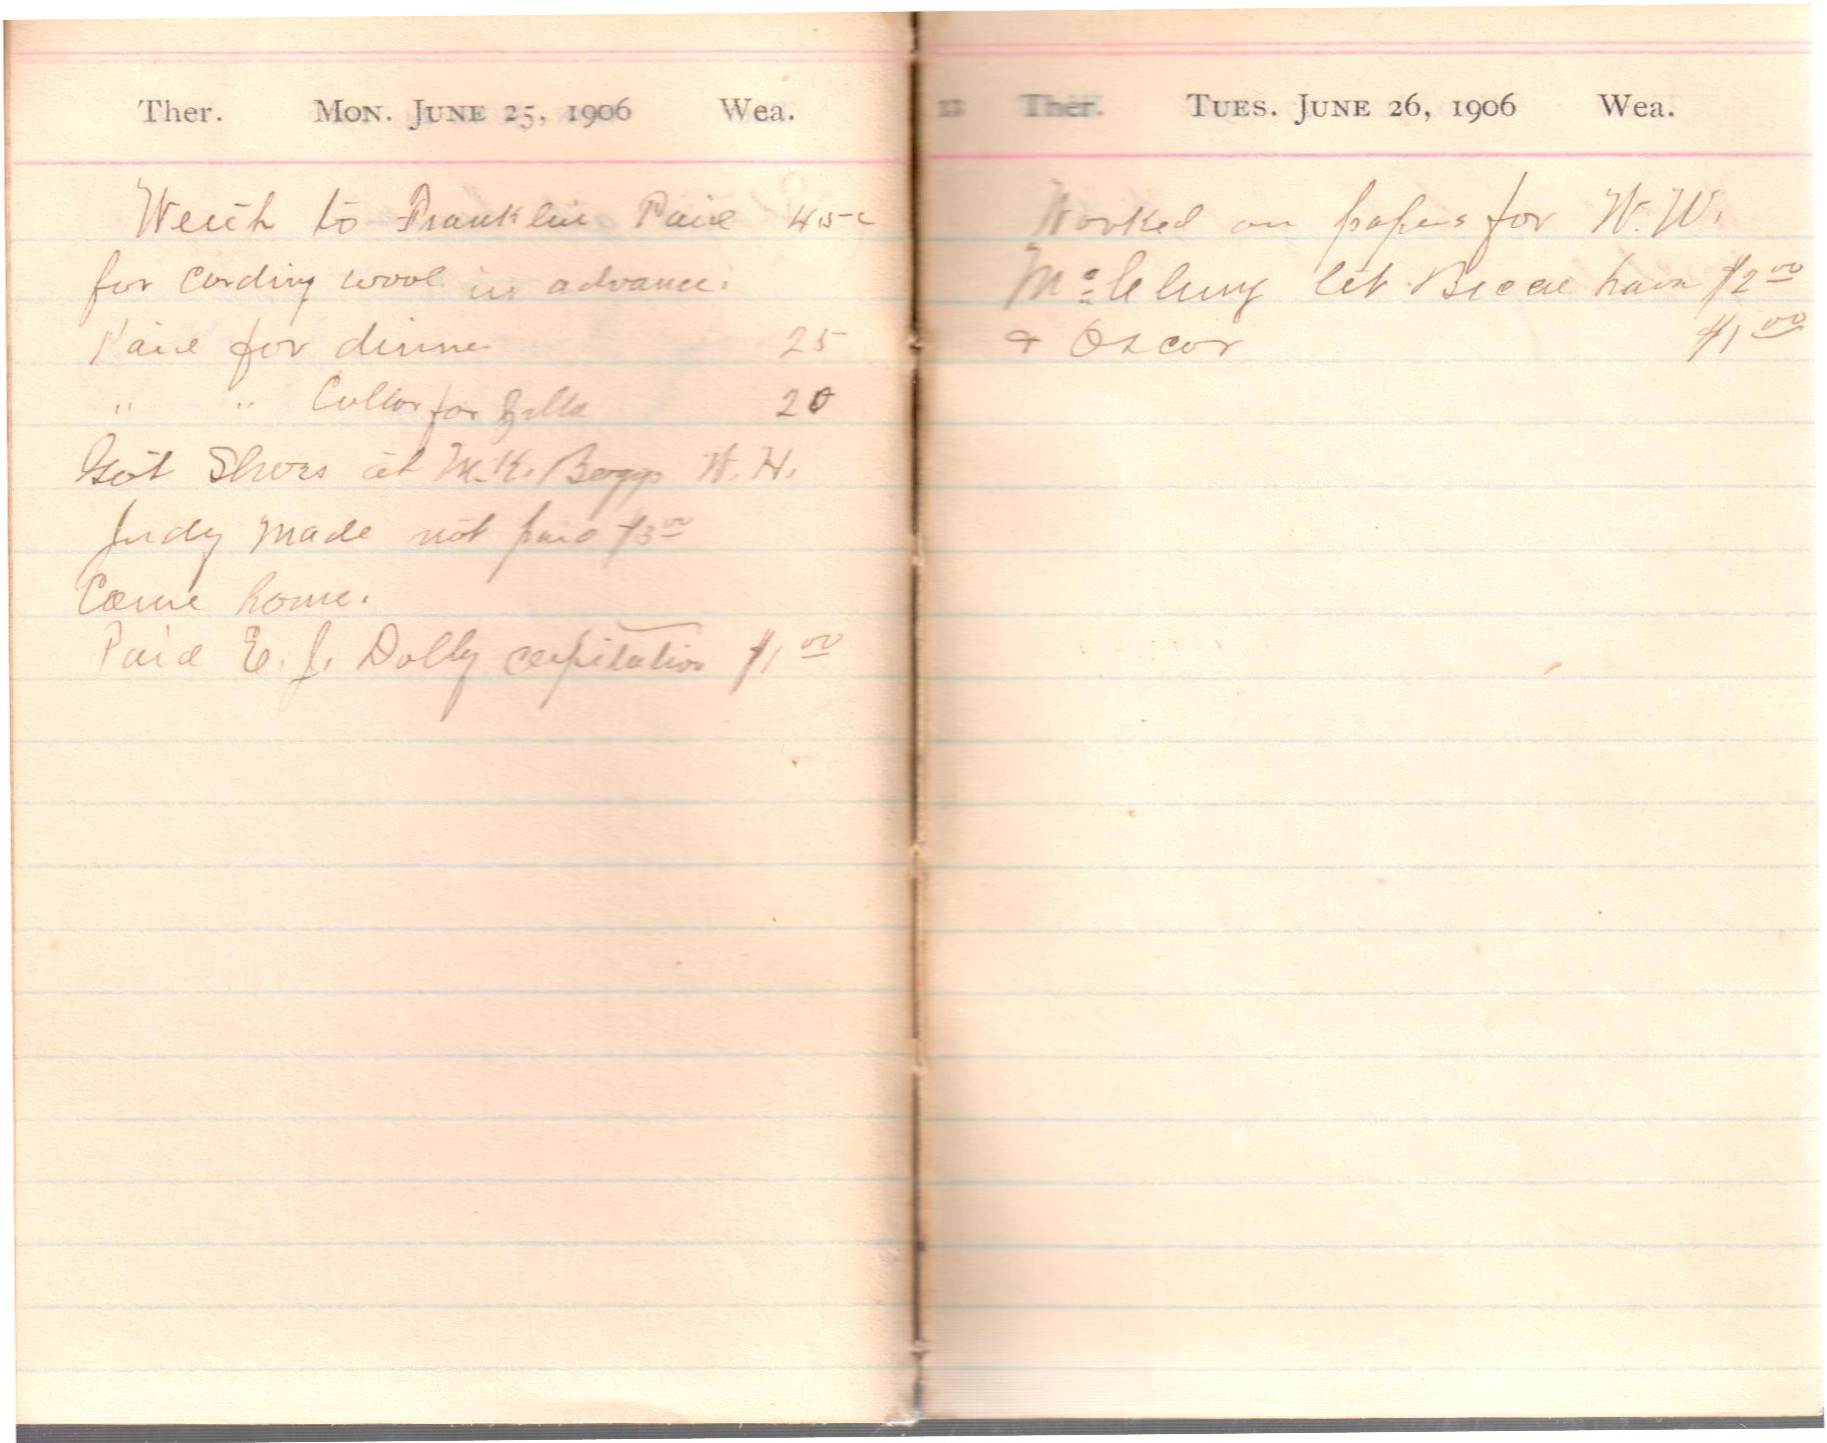 Ther. MON. JUNE 25, 1906 Wea.
Went to Franklin Paid 45c
for Carding wool in advance.
Paid for dinner 25
" " Collar for Zella 20
Got Shoes at M.K. Boggs W. H.
Judy made not paid $3.00
Came home.
Paid E. J. Dolly capitation $1.00
Ther. TUES. JUNE 26, 1906 Wea.
Worked on papers for W. W.
McClung let have $2.00
& Oscar $1.00